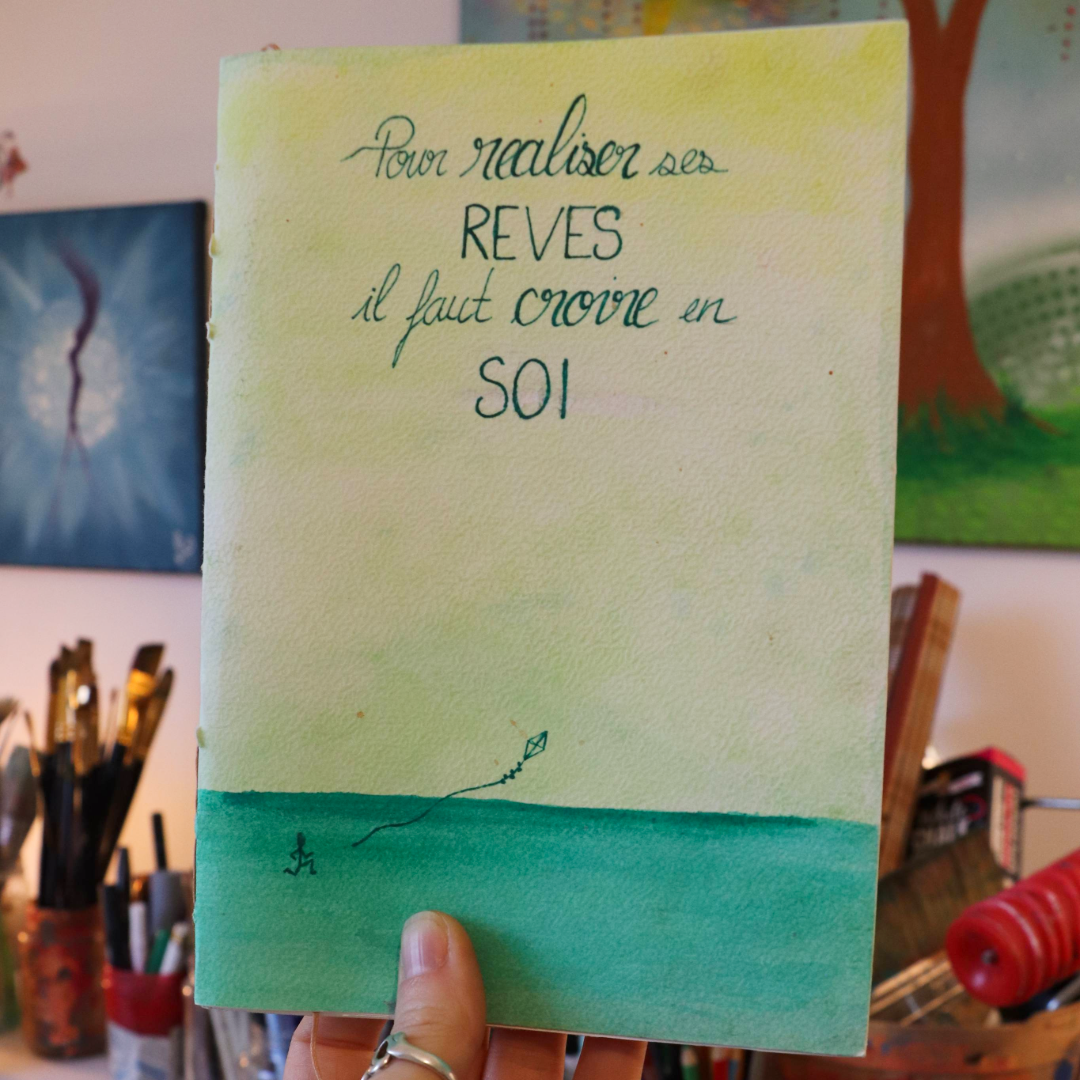 Pour realiser ses
REVES
il faut croire en
SOI